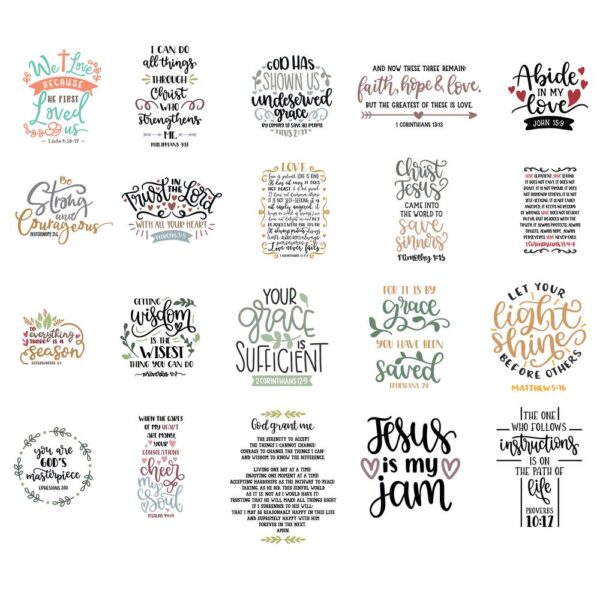 We Love
BECAUSE
HE FIRST
Loved
us
1 John 4:18-19
I CAN DO
all things
THROUGH
Christ
WHO
strengthens
ME.
PHILIPPIANS 4:13
GOD HAS
SHOWN US
undeserved
grace
BY COMING TO SAVE ALL PEOPLE
TITUS 2:11
AND NOW THESE THREE REMAIN:
faith, hope & love.
BUT THE GREATEST OF THESE IS LOVE.
1 CORINTHIANS 13:13
Abide
IN MY
love
JOHN 15:9
Be
Strong
and
Courageous
Trust IN THE Lord
WITH ALL YOUR HEART
PROVERBS 3:5
LOVE
Love never fails
Christ
Jesus
CAME
INTO THE
WORLD TO
save
sinners
1 Timothy 1:15
1 Corinthians 13:4-8
TO everything
THERE IS A
season
GETTING
wisdom
IS THE
WISEST
THING YOU CAN DO
YOUR
grace
IS
SUFFICIENT
2 CORINTHIANS 12:9
FOR IT IS BY
grace
YOU HAVE BEEN
saved
LET YOUR
light
shine
BEFORE OTHERS
MATTHEW 5:16
you are
GOD'S
masterpiece
EPHESIANS 2:10
WHEN THE CARES
OF MY HEART
ARE MANY,
YOUR
CONSOLATIONS
cheer
my
Soul
God grant me
THE SERENITY TO ACCEPT
THE THINGS I CANNOT CHANGE;
COURAGE TO CHANGE THE THINGS I CAN;
AND WISDOM TO KNOW THE DIFFERENCE.
LIVING ONE DAY AT A TIME;
ENJOYING ONE MOMENT AT A TIME;
ACCEPTING HARDSHIPS AS THE PATHWAY TO PEACE;
TAKING, AS HE DID, THIS SINFUL WORLD
AS IT IS, NOT AS I WOULD HAVE IT;
TRUSTING THAT HE WILL MAKE ALL THINGS RIGHT
IF I SURRENDER TO HIS WILL;
THAT I MAY BE REASONABLY HAPPY IN THIS LIFE
AND SUPREMELY HAPPY WITH HIM
FOREVER IN THE NEXT.
AMEN.
Jesus
is my
jam
THE ONE
WHO FOLLOWS
instructions
IS ON
THE PATH OF
life
PROVERBS
10:17